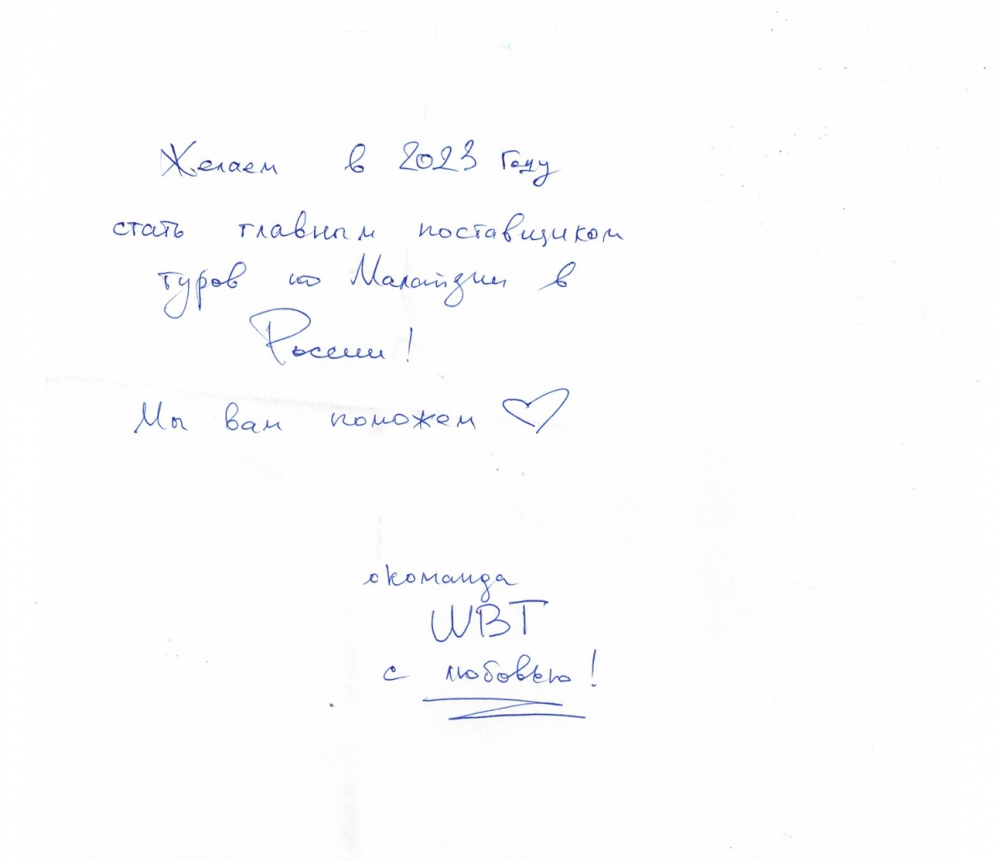 Желаем в 2023 году
стать главным поставщиком
туров по Малайзии в
России!
Мы вам поможем ♡
команда
WBT
с любовью!